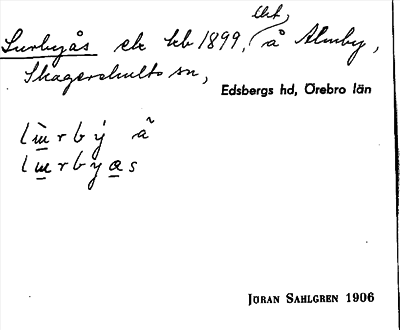 Lurbyås ek kb 1899, lht, å Almby,
Skagershults sn,
Edsbergs hd, Örebro län
JÖRAN SAHLGREN 1906